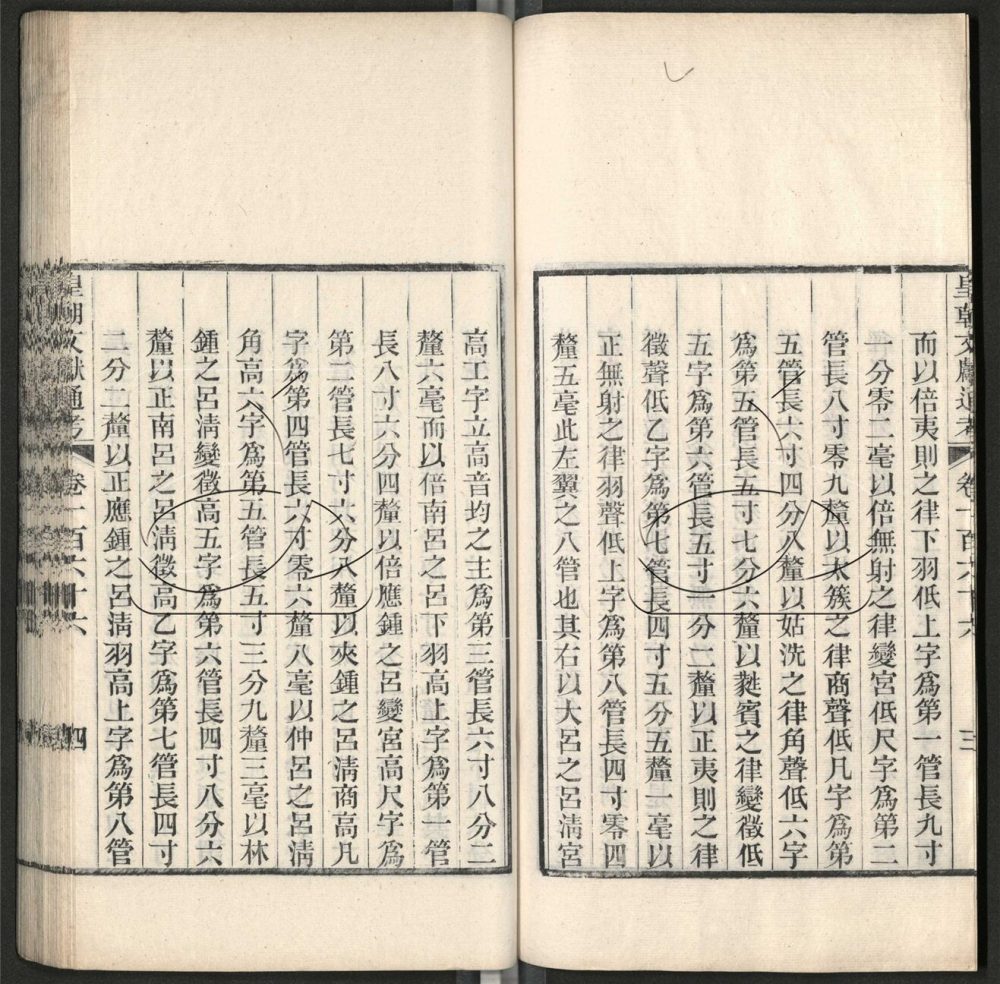 皇朝文獻通考 卷一百六十六 三
而以倍夷則之律下羽低上字為第一管長九寸
一分零二毫以倍無射之律變宮低尺字為第二
管長八寸零九釐以太簇之律商聲低凡字為第
五管長六寸四分八釐以姑洗之律角聲低六字
為第五管長五寸七分六釐以蕤賓之律變徵低
五字為第六管長五寸一分二釐以正夷則之律
徵聲低乙字為第七管長四寸五分五釐一毫以
正無射之律羽聲低上字為第八管長四寸零四
釐五毫此左翼之八管也其右以大呂之呂淸宮
高工字立高音均之主為第三管長六寸八分二
釐六毫而以倍南呂之呂下羽高上字為第一管
長八寸六分四釐以倍應鍾之呂變宮高尺字為
第二管長七寸六分八釐以夾鍾之呂淸商高凡
字為第四管長六寸零六釐八毫以仲呂之呂淸
角高六字為第五管長五寸三分九釐三毫以林
鍾之呂淸變徵高五字為第六管長四寸八分六
釐以正南呂之呂淸徵高乙字為第七管長四寸
二分二釐以正應鍾之呂淸羽高上字為第八管
皇朝文獻通考 卷一百六十六 四